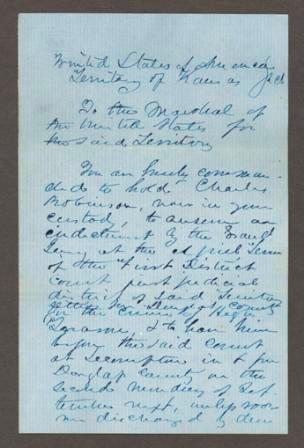 United States of America
Territory of Kansas
To the Marshal of
the United States for
the said Territory
You are hereby comman-
ded to hold Charles
Robinson, now in your
custody to answer an
indictment by the Grand
Jury at the April Term
of the First District
Court first Judicial
district of said Territory
for the crime of High
Treason, & to have him
before the said court
at Lecompton in & for
Douglas County on the
second Monday of Sep
tember next, unless soon
er discharged by due